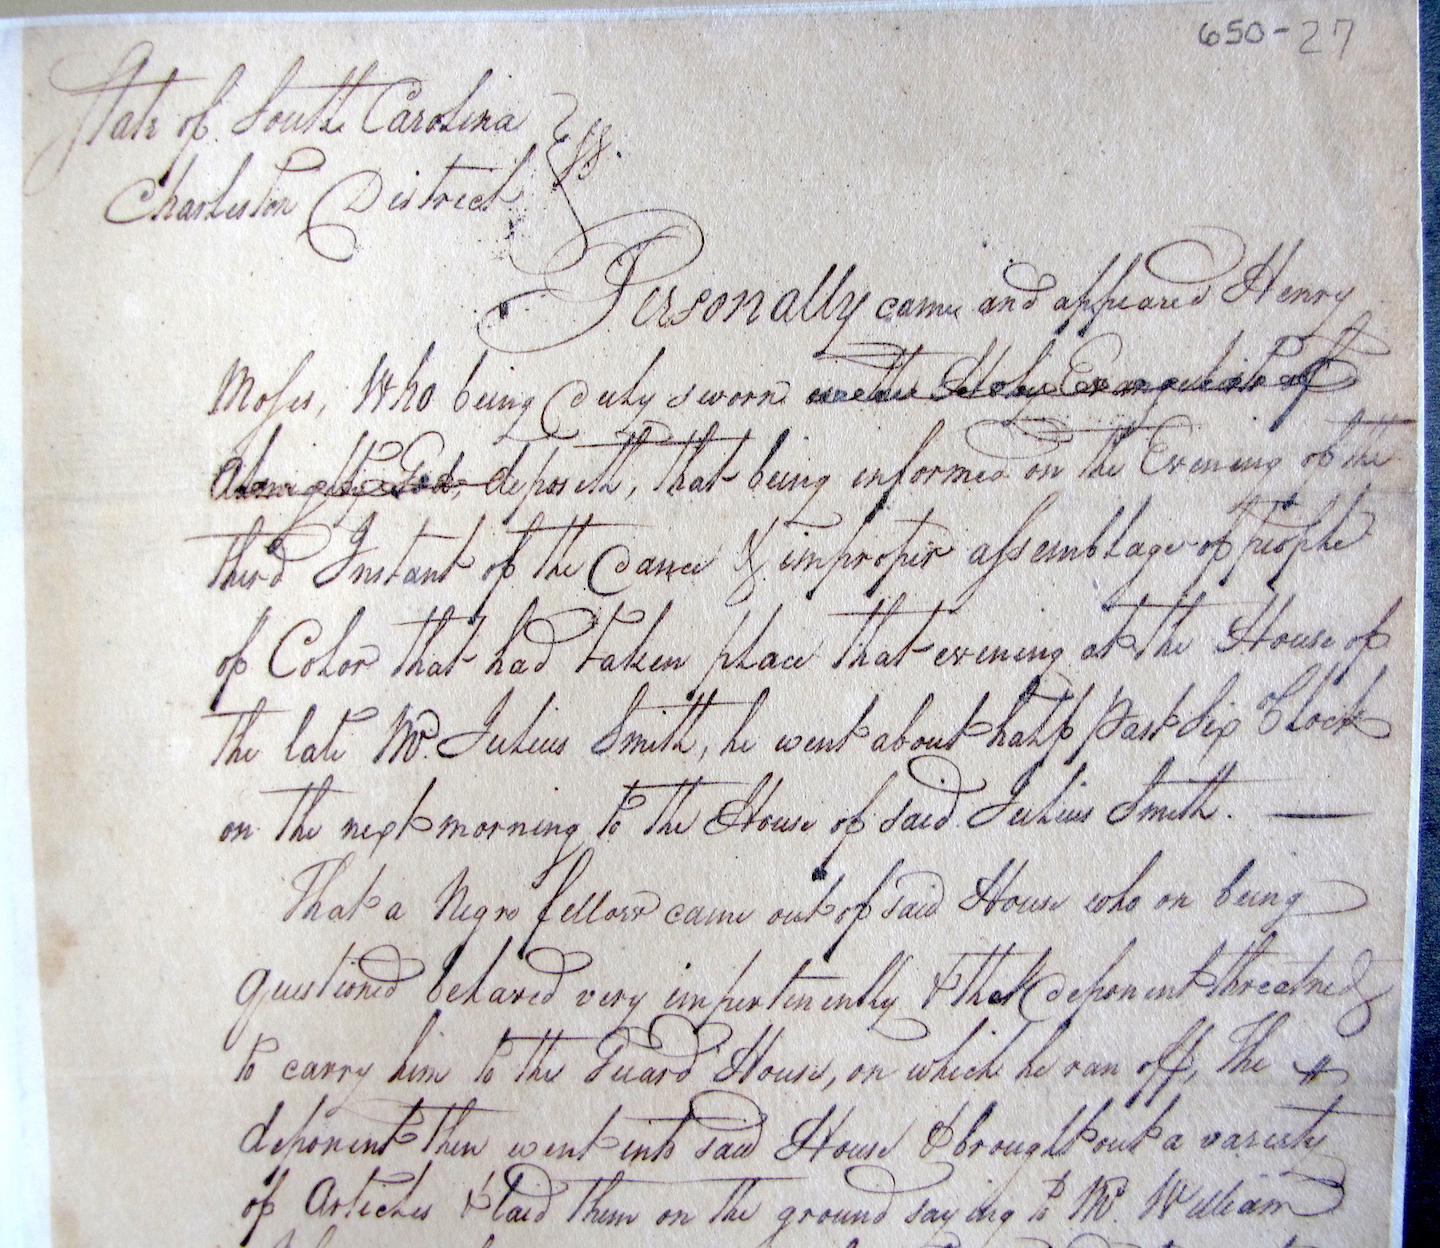 650-27
State of South Carolina
Charleston District } SS.
Personally came and appeared Henry
Moses, Who being Duly sworn on the Holy Evangelists of
Almighty God, deposeth, that being informed on the Evening of the
third Instant of the Dance & improper assemblage of people
of Color that had taken place that evening at the House of
the late Mr. Julius Smith, he went about half past Six Clock
on the next morning to the House of said Julius Smith. —
That a Negro fellow came out of said House who on being
questioned behaved very impertinently & that deponent threatned
to carry him to the Guard House, on which he ran off, The
deponent then went into said House & brought out a variety
of Articles & laid them on the ground saying to Mr. William